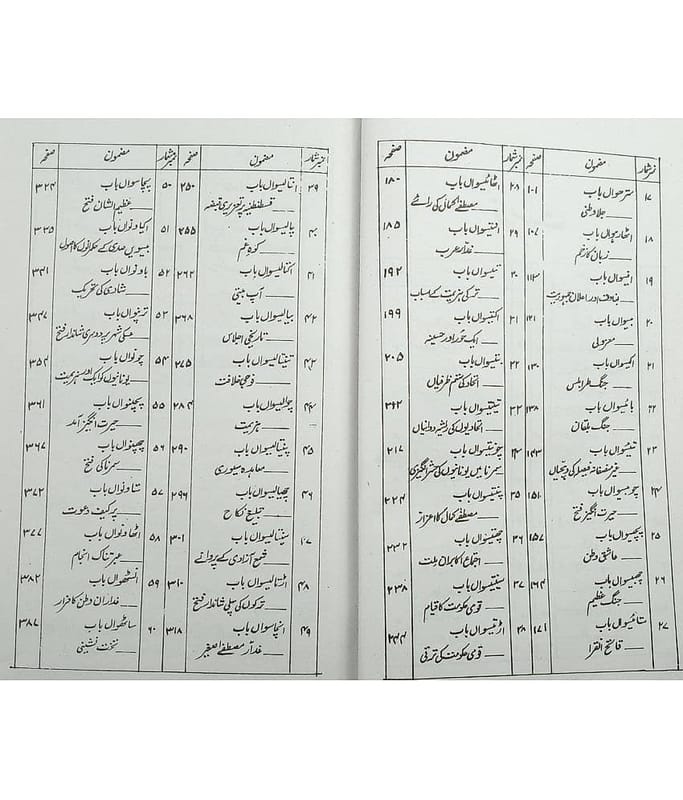 نمبر شمار مضمون صفحہ نمبر شمار مضمون صفحہ
۱۷ سترھواں باب ۱۰۱
جلا وطنی
۱۸ اٹھارھواں باب ۱۰۷
زبان کا زخم
۱۹ انیسواں باب ۱۱۳
بغاوت اور اعلان جمہوریت
۲۰ بیسواں باب ۱۲۱
معزولی
۲۱ اکیسواں باب ۱۳۰
جنگ طرابلس
۲۲ بائیسواں باب ۱۳۸
جنگ بلقان
۲۳ تئیسواں باب ۱۴۳
غیر منصفانہ فیصلہ کی دھجیاں
۲۴ چوبیسواں باب ۱۵۱
حیرت انگیز فتح
۲۵ پچیسواں باب ۱۵۷
عاشق وطن
۲۶ چھبیسواں باب ۱۶۴
جنگ عظیم
۲۷ ستائیسواں باب ۱۷۱
فاتح القرا
۲۸ اٹھائیسواں باب ۱۸۰
مصطفےٰ کمال کی رائے
۲۹ انتیسواں باب ۱۸۵
غدار عرب
۳۰ تیسواں باب ۱۹۲
ترکی ہزیمت کے اسباب
۳۱ اکتیسواں باب ۱۹۹
ایک حور اور حسینہ
۳۲ بتیسواں باب ۲۰۵
اتحاد کی ستم ظریفیاں
۳۳ تیتیسواں باب ۲۱۲
اتحادیوں کی ریشہ دوانیاں
۳۴ چونتیسواں باب ۲۱۷
سمرنا میں یونانیوں کی شر انگیزی
۳۵ پینتیسواں باب ۲۲۴
مصطفےٰ کمال کا اعزاز
۳۶ چھتیسواں باب ۲۳۲
اجتماع اکابران ملت
۳۷ سینتیسواں باب ۲۳۸
قومی حکومت کا قیام
۳۸ اڑتیسواں باب ۲۴۴
قومی حکومت کی ترقی
نمبر شمار مضمون صفحہ نمبر شمار مضمون صفحہ
۳۹ انتالیسواں باب ۲۵۰
قسطنطنیہ پر تعزیری قبضہ
۴۰ چالیسواں باب ۲۵۵
کوہ غم
۴۱ اکتالیسواں باب ۲۶۲
آپ بیتی
۴۲ بیالیسواں باب ۲۶۸
تاریخی اجلاس
۴۳ تینتالیسواں باب ۲۷۵
فوجی خلافت
۴۴ چوالیسواں باب ۲۸۴
ہزیمت
۴۵ پینتالیسواں باب ۲۹۰
معاہدہ میسوری
۴۶ چھیالیسواں باب ۲۹۶
تبلیغ نکاح
۴۷ سینتالیسواں باب ۳۰۱
شمع آزادی کے پروانے
۴۸ اڑتالیسواں باب ۳۱۰
ترکوں کی پہلی شاندار فتح
۴۹ انچاسواں باب ۳۱۸
غدار مصطفےٰ صغیر
۵۰ پچاسواں باب ۳۲۴
عظیم الشان فتح
۵۱ اکیاونواں باب ۳۳۵
بیسویں صدی کے حکمرانوں کا اصول
۵۲ باونواں باب ۳۴۱
شادی کی تحریک
۵۳ ترپنواں باب ۳۴۷
سکی شہر پر دوسری شاندار فتح
۵۴ چونواں باب ۳۵۴
یونانیوں کو ایک اور ہزیمت
۵۵ پچپنواں باب ۳۶۱
حیرت انگیز آمد
۵۶ چھپنواں باب ۳۶۷
سمرنا کی فتح
۵۷ ستاونواں باب ۳۷۲
پرکیف دعوت
۵۸ اٹھاونواں باب ۳۷۷
عبرتناک انجام
۵۹ انسٹھواں باب ۳۸۲
غداران وطن کا فرار
۶۰ ساٹھواں باب ۳۸۷
تخت نشینی